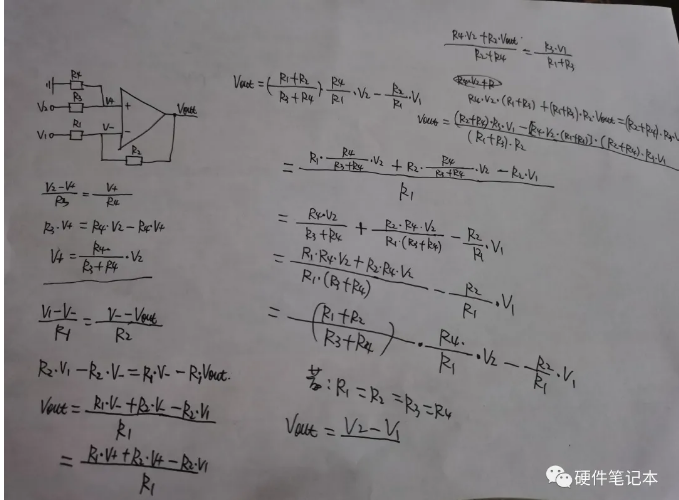 R4
V2 R3 V+ + Vout
V1 R1 V- -
R2
(V2-V+)/R3 = V+/R4
R3·V+ = R4·V2-R4·V+
V+ = R4/(R3+R4)·V2
(V1-V-)/R1 = (V--Vout)/R2
R2·V1-R2·V- = R1·V--R1·Vout.
Vout = (R1·V-+R2·V--R2·V1)/R1
= (R1·V++R2·V+-R2·V1)/R1
(R4·V2+R2·Vout)/(R2+R4) = R3·V1/(R1+R3)
R4·V2·(R1+R3)+(R1+R3)·R2·Vout=(R2+R4)·R3·V1
Vout = ((R1+R2)/(R3+R4))·R4/R1·V2-R2/R1·V1
= (R1·R4/(R3+R4)·V2+R2·R4/(R3+R4)·V2-R2·V1)/R1
= R4·V2/(R3+R4)+R2·R4·V2/(R1·(R3+R4))-R2/R1·V1
= (R1·R4·V2+R2·R4·V2)/(R1·(R3+R4))-R2/R1·V1
= ((R1+R2)/(R3+R4))·R4/R1·V2-R2/R1·V1
若:R1=R2=R3=R4
Vout = V2-V1
硬件笔记本